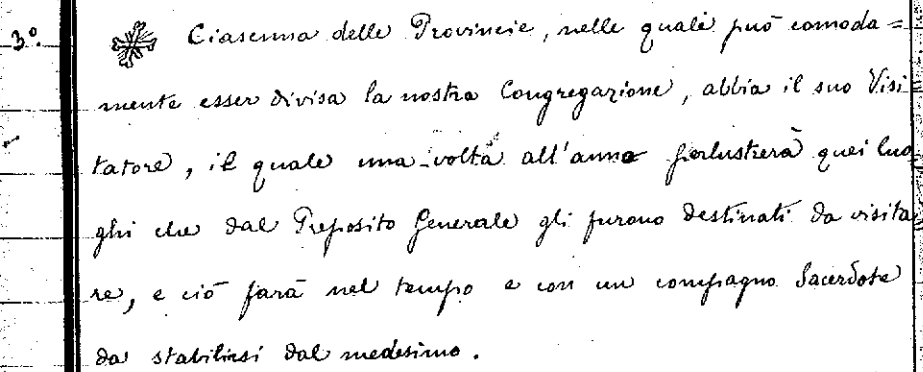 3º. Ciascuna delle Provincie, nelle quali può comoda=
mente esser divisa la nostra Congregazione, abbia il suo Visi
tatore, il quale una volta all'anno perlustrerà quei luo
ghi che dal Preposito Generale gli furono destinati da visita
re, e ciò farà nel tempo e con un compagno Sacerdote
da stabilirsi dal medesimo.